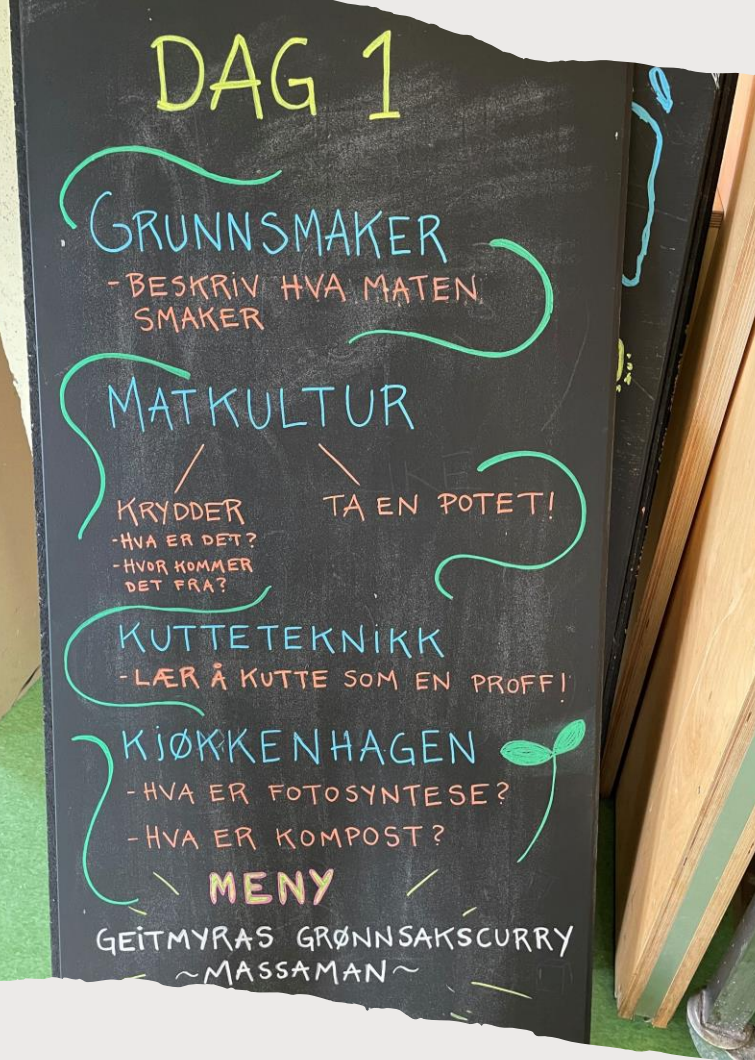 DAG 1
GRUNNSMAKER
-BESKRIV HVA MATEN
SMAKER
MATKULTUR
KRYDDER
-HVA ER DET?
-HVOR KOMMER
DET FRA?
TA EN POTET!
KUTTETEKNIKK
-LÆR Å KUTTE SOM EN PROFF!
KJØKKENHAGEN
-HVA ER FOTOSYNTESE?
-HVA ER KOMPOST?
MENY
GEITMYRAS GRØNNSAKSCURRY
~MASSAMAN~